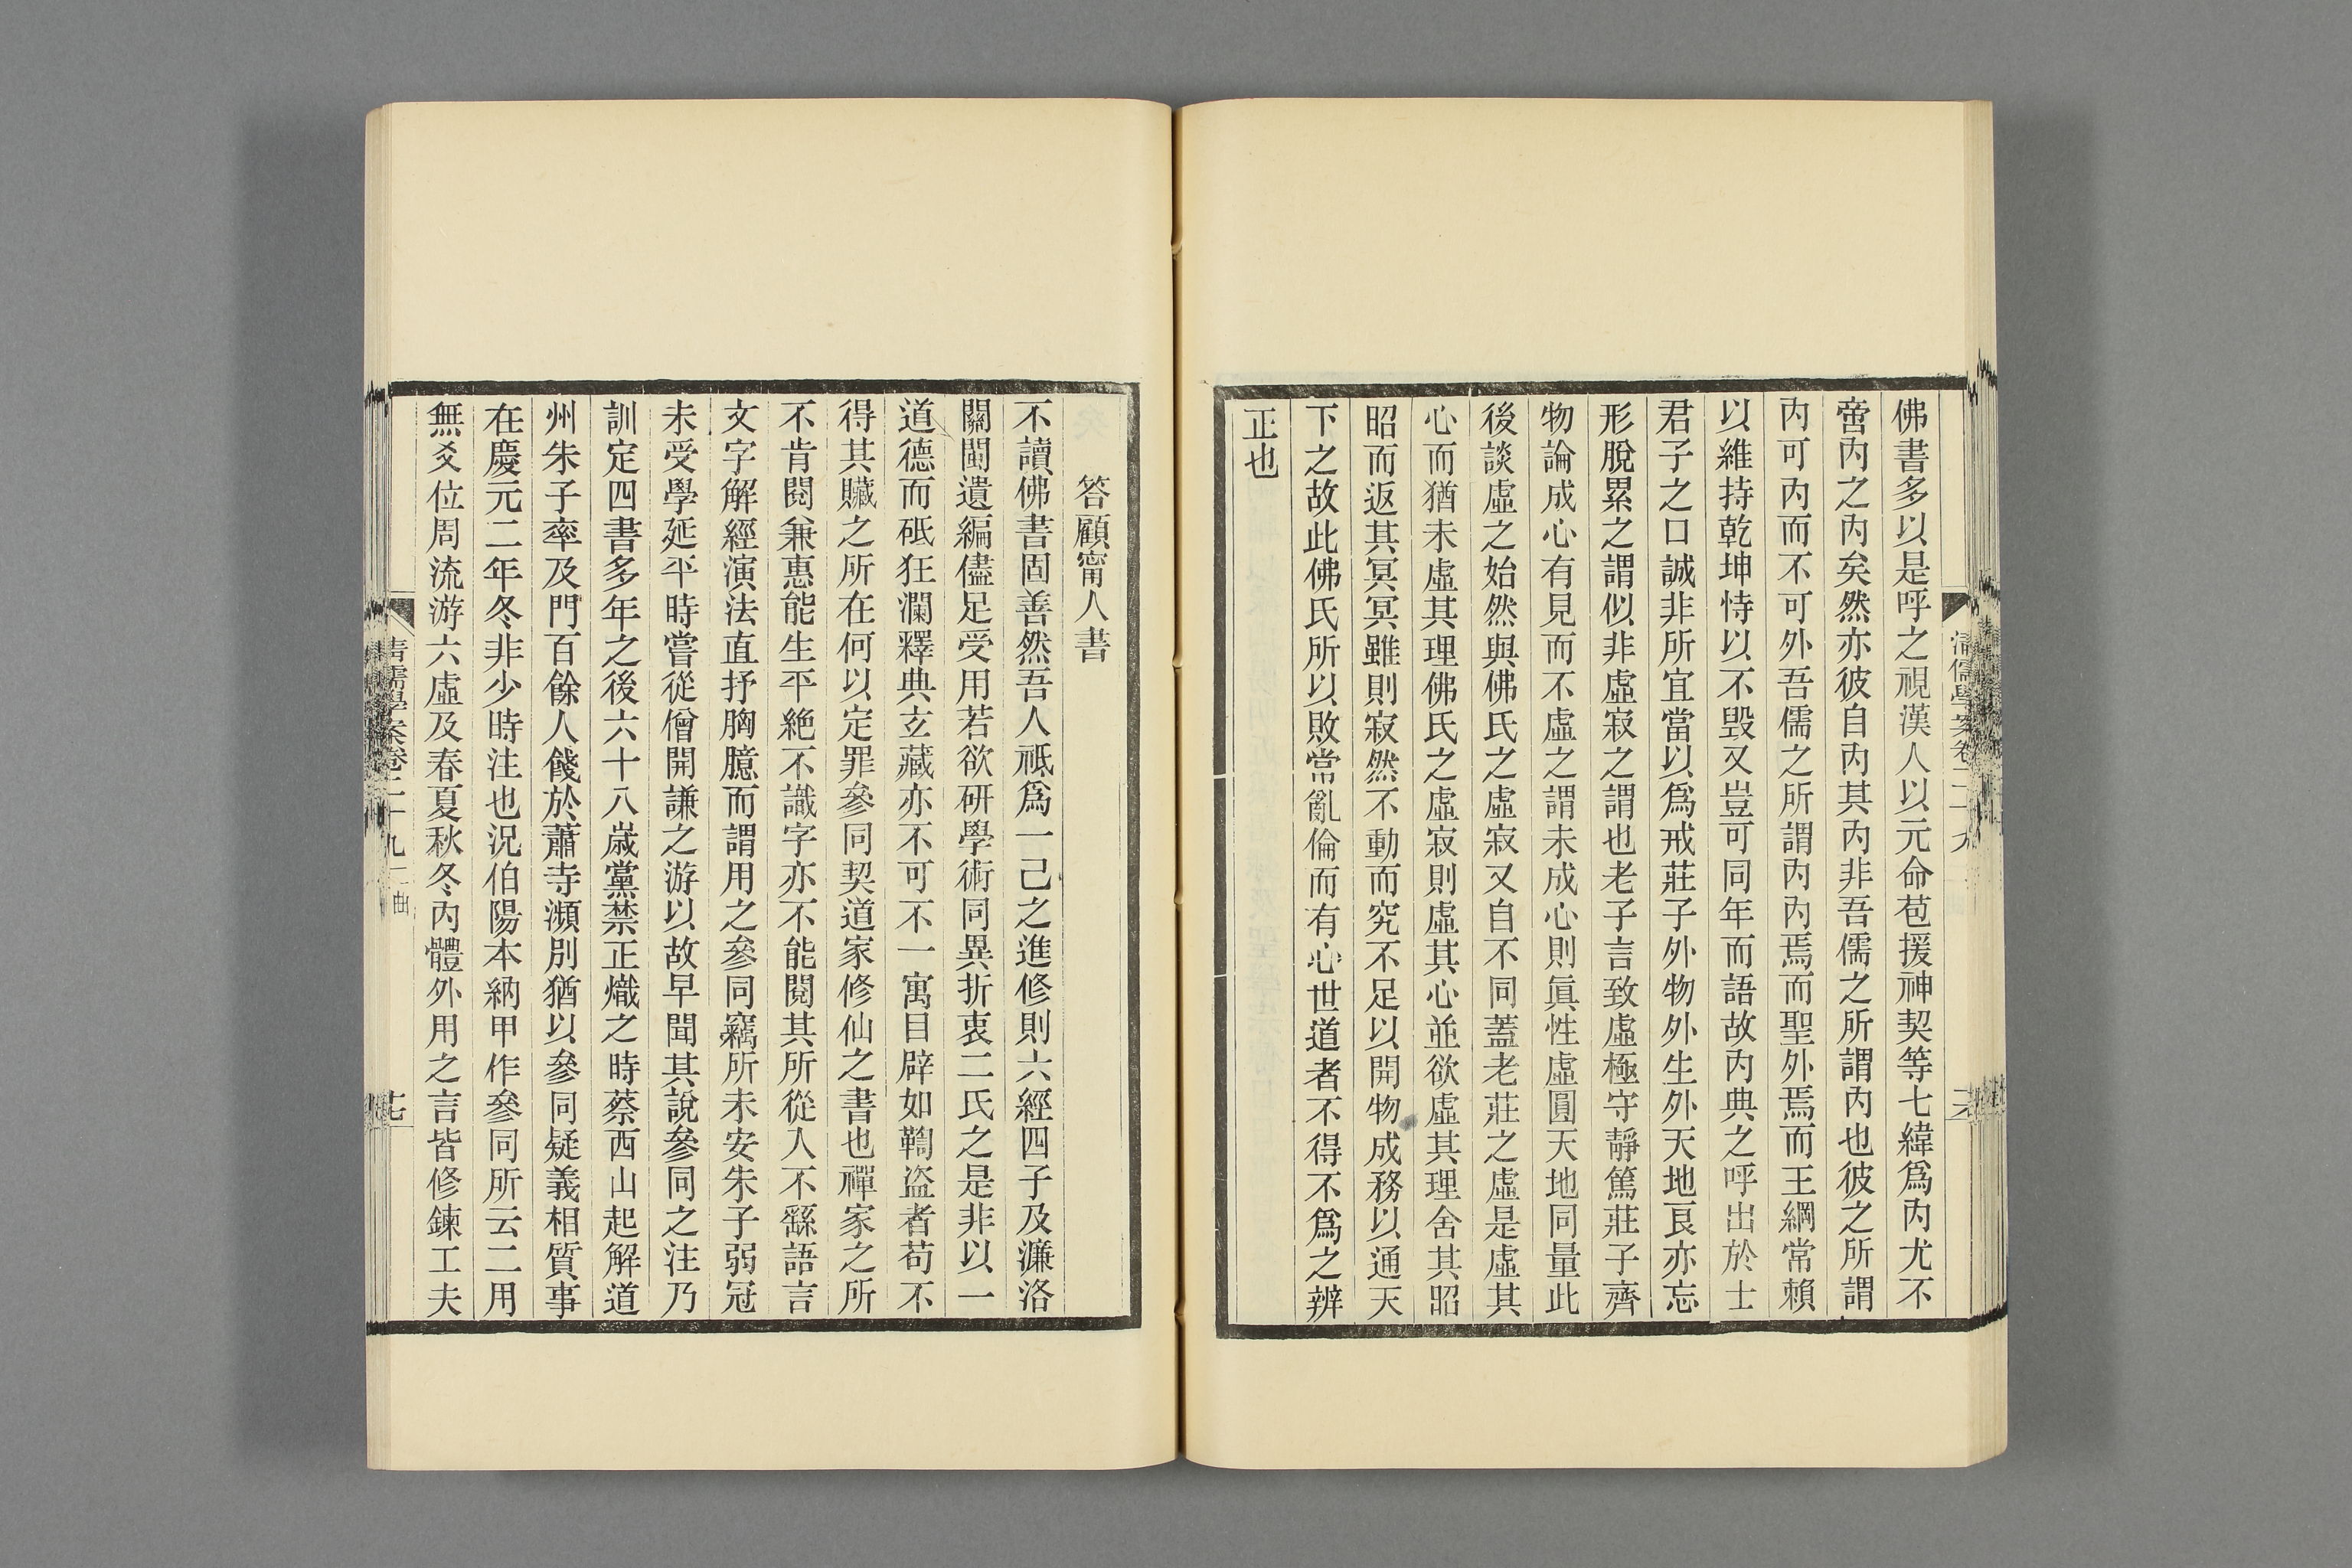 佛書多以是呼之視漢人以元命苞援神契等七緯爲內尤不
啻內之內矣然亦彼自內其內非吾儒之所謂內也彼之所謂
內可內而不可外吾儒之所謂內內焉而聖外焉而王綱常賴
以維持乾坤恃以不毀又豈可同年而語故內典之呼出於士
君子之口誠非所宜當以爲戒莊子外物外生外天地良亦忘
形脫累之謂似非虛寂之謂也老子言致虛極守靜篤莊子齊
物論成心有見而不虛之謂未成心則眞性虛圓天地同量此
後談虛之始然與佛氏之虛寂又自不同蓋老莊之虛是虛其
心而猶未虛其理佛氏之虛寂則虛其心並欲虛其理舍其昭
昭而返其冥冥雖則寂然不動而究不足以開物成務以通天
下之故此佛氏所以敗常亂倫而有心世道者不得不爲之辨
正也
清儒學案卷二十九
答顧甯人書
不讀佛書固善然吾人祗爲一己之進修則六經四子及濂洛
關閩遺編儘足受用若欲研學術同異折衷二氏之是非以一
道德而砥狂瀾釋典玄藏亦不可不一寓目辟如鞫盜者苟不
得其贓之所在何以定罪參同契道家修仙之書也禪家之所
不肯閱兼惠能生平絶不識字亦不能閱其所從入不繇語言
文字解經演法直抒胸臆而謂用之參同竊所未安朱子弱冠
未受學延平時嘗從僧開謙之游以故早聞其說參同之注乃
訓定四書多年之後六十八歲黨禁正熾之時蔡西山起解道
州朱子率及門百餘人餞於蕭寺瀕別猶以參同疑義相質事
在慶元二年冬非少時注也況伯陽本納甲作參同所云二用
無爻位周流游六虛及春夏秋冬內體外用之言皆修鍊工夫
清儒學案卷二十九 二曲
十七